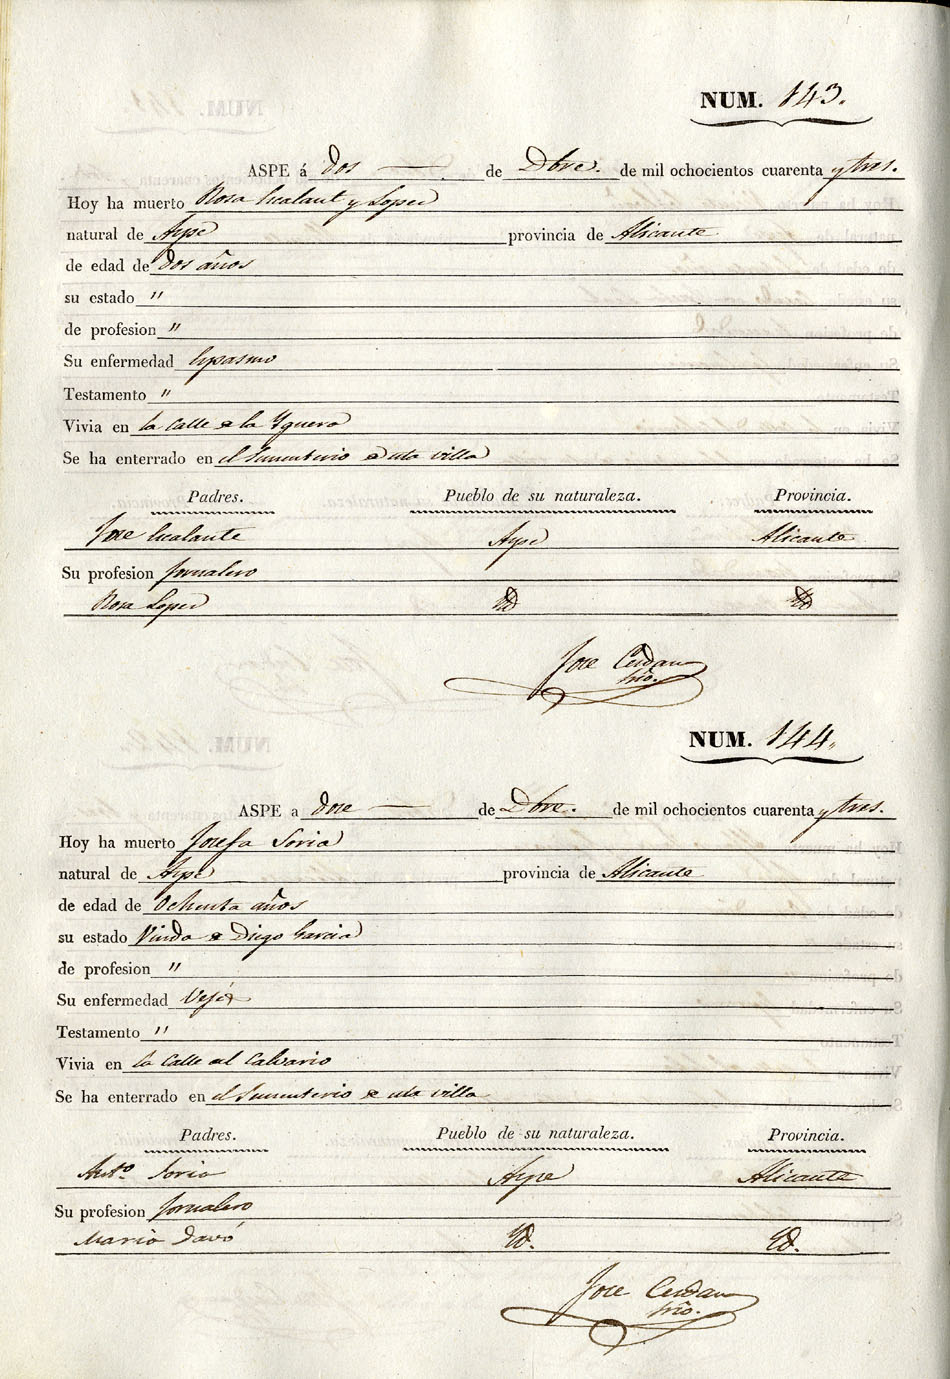 NUM. 143.
ASPE á dos de Dbre. de mil ochocientos cuarenta y tres.
Hoy ha muerto Rosa Escalant y Lopez
natural de Aspe provincia de Alicante
de edad de dos años
su estado "
de profesion "
Su enfermedad Espasmo
Testamento "
Vivia en la Calle de la Yguera
Se ha enterrado en el Sementerio de esta villa
Padres. Pueblo de su naturaleza. Provincia.
Jose Escalante Aspe Alicante
Su profesion Jornalero
Rosa Lopez Yd Yd
Jose Cerdan
NUM. 144.
ASPE a dose de Dbre. de mil ochocientos cuarenta y tres.
Hoy ha muerto Josefa Soria
natural de Aspe provincia de Alicante
de edad de Ochenta años
su estado Viuda de Diego Garcia
de profesion "
Su enfermedad Vejés
Testamento "
Vivia en la Calle del Calvario
Se ha enterrado en el Sementerio de esta villa
Padres. Pueblo de su naturaleza. Provincia.
Antº Soria Aspe Alicante
Su profesion Jornalero
Maria Davó Yd. Yd.
Jose Cerdan